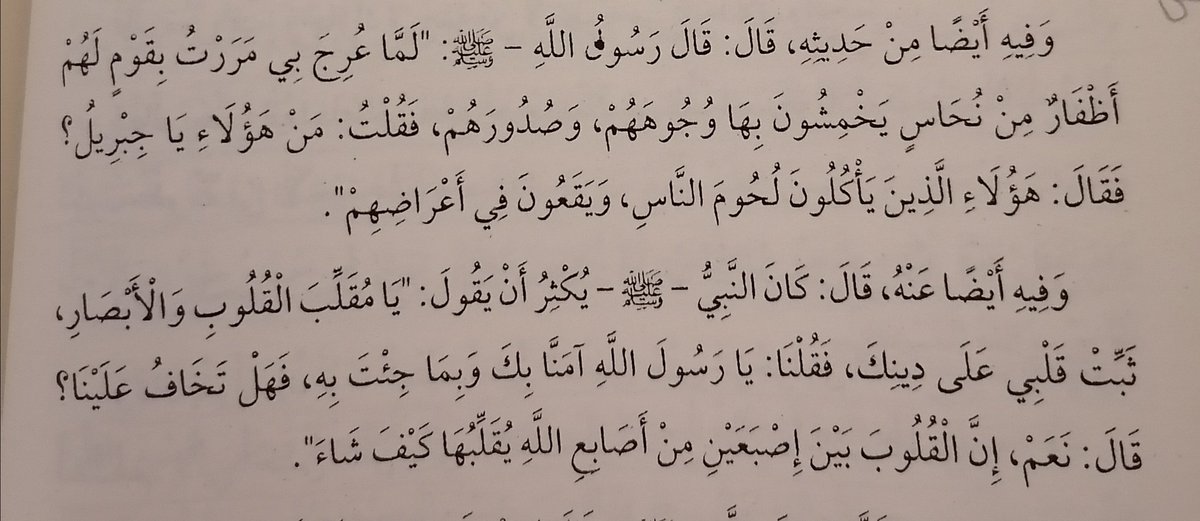 وَفِيهِ أَيْضًا مِنْ حَدِيثِهِ، قَالَ: قَالَ رَسُولُ اللَّهِ – ﷺ: "لَمَّا عُرِجَ بِي مَرَرْتُ بِقَوْمٍ لَهُمْ
أَظْفَارٌ مِنْ نُحَاسٍ يَخْمِشُونَ بِهَا وُجُوهَهُمْ، وَصُدُورَهُمْ، فَقُلْتُ: مَنْ هَؤُلَاءِ يَا جِبْرِيلُ؟
فَقَالَ: هَؤُلَاءِ الَّذِينَ يَأْكُلُونَ لُحُومَ النَّاسِ، وَيَقَعُونَ فِي أَعْرَاضِهِمْ".
وَفِيهِ أَيْضًا عَنْهُ، قَالَ: كَانَ النَّبِيُّ – ﷺ – يُكْثِرُ أَنْ يَقُولَ: "يَا مُقَلِّبَ الْقُلُوبِ وَالْأَبْصَارِ،
ثَبِّتْ قَلْبِي عَلَى دِينِكَ، فَقُلْنَا: يَا رَسُولَ اللَّهِ آمَنَّا بِكَ وَبِمَا جِئْتَ بِهِ، فَهَلْ تَخَافُ عَلَيْنَا؟
قَالَ: نَعَمْ، إِنَّ الْقُلُوبَ بَيْنَ إِصْبَعَيْنِ مِنْ أَصَابِعِ اللَّهِ يُقَلِّبُهَا كَيْفَ شَاءَ".